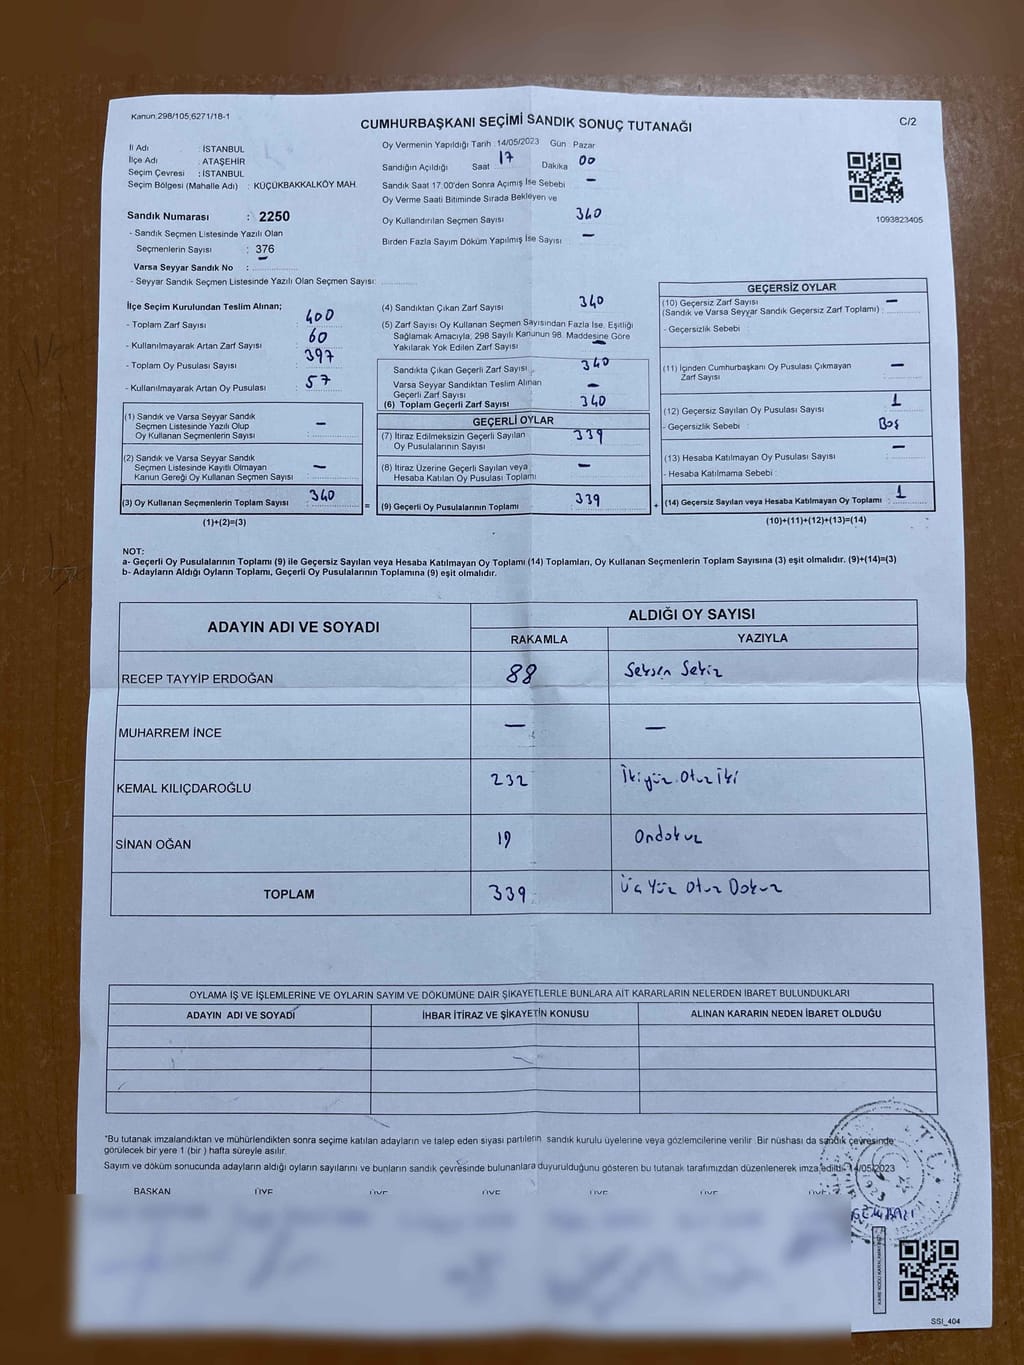 Kanun,298/105,6271/18-1
CUMHURBAŞKANI SEÇİMİ SANDIK SONUÇ TUTANAĞI
C/2
İl Adı : İSTANBUL
İlçe Adı : ATAŞEHİR
Seçim Çevresi : İSTANBUL
Seçim Bölgesi (Mahalle Adı) : KÜÇÜKBAKKALKÖY MAH.
Sandık Numarası : 2250
- Sandık Seçmen Listesinde Yazılı Olan
Seçmenlerin Sayısı : 376
Varsa Seyyar Sandık No :
- Seyyar Sandık Seçmen Listesinde Yazılı Olan Seçmen Sayısı:
Oy Vermenin Yapıldığı Tarih :14/05/2023 Gün : Pazar
Sandığın Açıldığı Saat 17 Dakika 00
Sandık Saat 17.00'den Sonra Açımış İse Sebebi –
Oy Verme Saati Bitiminde Sırada Bekleyen ve
Oy Kullandırılan Seçmen Sayısı 340
Birden Fazla Sayım Döküm Yapılmış İse Sayısı –
1093823405
İlçe Seçim Kurulundan Teslim Alınan;
- Toplam Zarf Sayısı : 400
- Kullanılmayarak Artan Zarf Sayısı : 60
- Toplam Oy Pusulası Sayısı : 397
- Kullanılmayarak Artan Oy Pusulası : 57
(1) Sandık ve Varsa Seyyar Sandık
Seçmen Listesinde Yazılı Olup
Oy Kullanan Seçmenlerin Sayısı –
(2) Sandık ve Varsa Seyyar Sandık
Seçmen Listesinde Kayıtlı Olmayan
Kanun Gereği Oy Kullanan Seçmen Sayısı –
(3) Oy Kullanan Seçmenlerin Toplam Sayısı : 340
(1)+(2)=(3)
(4) Sandıktan Çıkan Zarf Sayısı 340
(5) Zarf Sayısı Oy Kullanan Seçmen Sayısından Fazla İse, Eşitliği
Sağlamak Amacıyla, 298 Sayılı Kanunun 98. Maddesine Göre
Yakılarak Yok Edilen Zarf Sayısı –
Sandıkta Çıkan Geçerli Zarf Sayısı 340
Varsa Seyyar Sandıktan Teslim Alınan
Geçerli Zarf Sayısı –
(6) Toplam Geçerli Zarf Sayısı 340
GEÇERLİ OYLAR
(7) İtiraz Edilmeksizin Geçerli Sayılan
Oy Pusulalarının Sayısı 339
(8) İtiraz Üzerine Geçerli Sayılan veya
Hesaba Katılan Oy Pusulası Toplamı –
= (9) Geçerli Oy Pusulalarının Toplamı 339 +
GEÇERSİZ OYLAR
(10) Geçersiz Zarf Sayısı –
(Sandık ve Varsa Seyyar Sandık Geçersiz Zarf Toplamı) :
- Geçersizlik Sebebi
(11) İçinden Cumhurbaşkanı Oy Pusulası Çıkmayan
Zarf Sayısı –
(12) Geçersiz Sayılan Oy Pusulası Sayısı 1
- Geçersizlik Sebebi : Boş
(13) Hesaba Katılmayan Oy Pusulası Sayısı –
- Hesaba Katılmama Sebebi :
(14) Geçersiz Sayılan veya Hesaba Katılmayan Oy Toplamı : 1
(10)+(11)+(12)+(13)=(14)
NOT:
a- Geçerli Oy Pusulalarının Toplamı (9) ile Geçersiz Sayılan veya Hesaba Katılmayan Oy Toplamı (14) Toplamları, Oy Kullanan Seçmenlerin Toplam Sayısına (3) eşit olmalıdır. (9)+(14)=(3)
b- Adayların Aldığı Oyların Toplamı, Geçerli Oy Pusulalarının Toplamına (9) eşit olmalıdır.
ADAYIN ADI VE SOYADI
ALDIĞI OY SAYISI
RAKAMLA YAZIYLA
RECEP TAYYİP ERDOĞAN 88 Seksen Sekiz
MUHARREM İNCE – –
KEMAL KILIÇDAROĞLU 232 İkiyüz Otuz İki
SİNAN OĞAN 19 Ondokuz
TOPLAM 339 Üç Yüz Otuz Dokuz
OYLAMA İŞ VE İŞLEMLERİNE VE OYLARIN SAYIM VE DÖKÜMÜNE DAİR ŞİKAYETLERLE BUNLARA AİT KARARLARIN NELERDEN İBARET BULUNDUKLARI
ADAYIN ADI VE SOYADI İHBAR İTİRAZ VE ŞİKAYETİN KONUSU ALINAN KARARIN NEDEN İBARET OLDUĞU
*Bu tutanak imzalandıktan ve mühürlendikten sonra seçime katılan adayların ve talep eden siyasi partilerin sandık kurulu üyelerine veya gözlemcilerine verilir. Bir nüshası da sandık çevresinde
görülecek bir yere 1 (bir ) hafta süreyle asılır.
Sayım ve döküm sonucunda adayların aldığı oyların sayılarını ve bunların sandık çevresinde bulunanlara duyurulduğunu gösteren bu tutanak tarafımızdan düzenlenerek imza edildi. 14/05/2023
BAŞKAN ÜYE ÜYE ÜYE ÜYE ÜYE ÜYE
T.C.
SSI_404